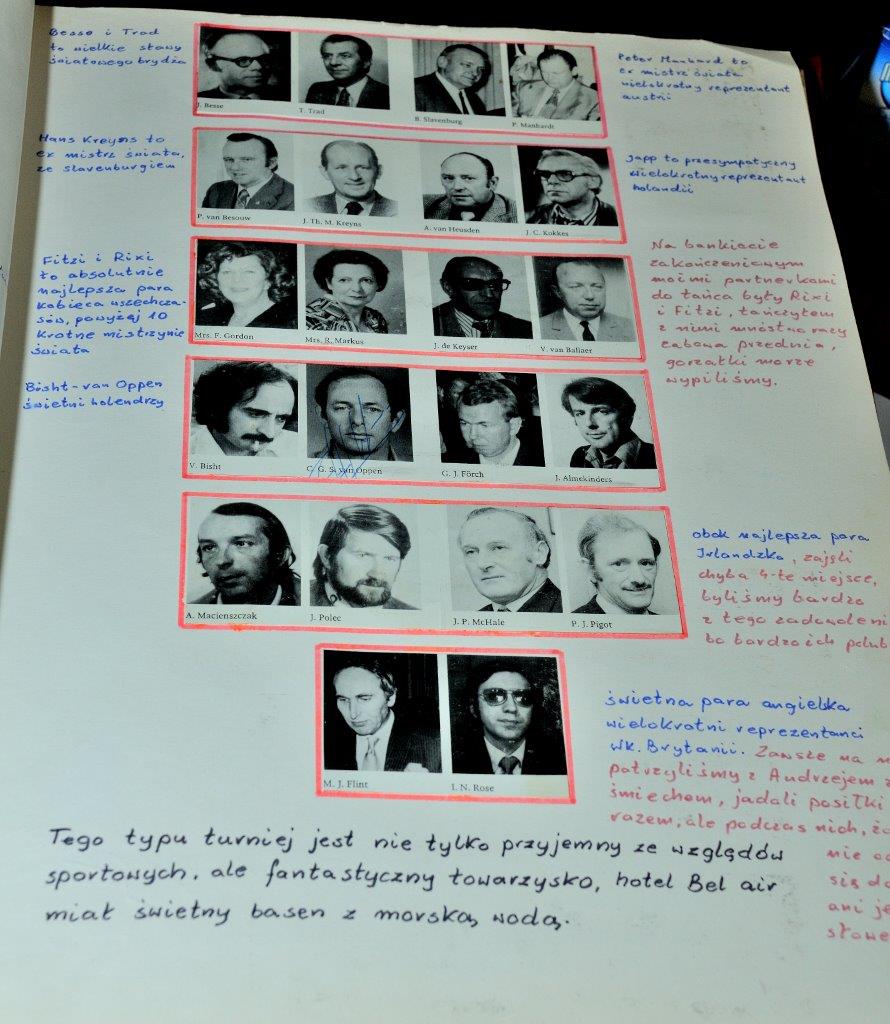 Besse i Trad
to wielkie sławy
światowego brydża
J. Besse
T. Trad
B. Slavenburg
P. Manhardt
Peter Manhard to
ex mistrz świata
wielokrotny reprezentant
austrii
Hans Kreyns to
ex mistrz świata,
ze slavenburgiem
P. van Besouw
J. Th. M. Kreyns
A. van Heusden
J. C. Kokkes
Japp to przesympatyczny
wielokrotny reprezentant
holandii
Fitzi i Rixi
to absolutnie
najlepsza para
kobieca wszechcza-
sów, powyżej 10
krotne mistrzynie
świata
Mrs. F. Gordon
Mrs. R. Markus
J. de Keyser
V. van Baliaer
Na bankiecie
zakończeniowym
moimi partnerkami
do tańca były Rixi
i Fitzi, tańczyłem
z nimi mnóstwo razy
zabawa przednia,
gorzałki morze
wypiliśmy.
Bisht-van Oppen
świetni holendrzy
V. Bisht
C. G. S. van Oppen
G. J. Förch
J. Almekinders
A. Macienszczak
J. Polec
J. P. McHale
P. J. Pigot
obok najlepsza para
Irlandzka, zajęli
chyba 4-te miejsce,
byliśmy bardzo
z tego zadowoleni
bo bardzo ich polub
M. J. Flint
I. N. Rose
świetna para angielska
wielokrotni reprezentanci
Wk. Brytanii. Zawsze na
patrzyliśmy z Andrzejem z
śmiechem, jadali posiłki
razem, ale podczas nich, że
nie
się do
ani je
słowe
Tego typu turniej jest nie tylko przyjemny ze względów
sportowych, ale fantastyczny towarzysko, hotel Bel air
miał świetny basen z morską wodą.